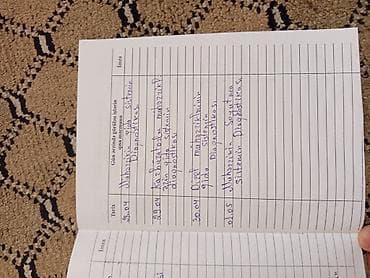 Tarix
Gün ərzində görülən işlərin
qısa məzmunu
İmza
Mühərrikin qida sistemin
Diaqnostikası
29.04 Karburatorlu mühərrikl
qida sistemin
diaqnostikası
30.04 Dizel mühərriklərinin
qida sistemin
Diaqnostikası
01.05 Mühərrikin Soyutma
Sistemin Diaqnostikası
İmza